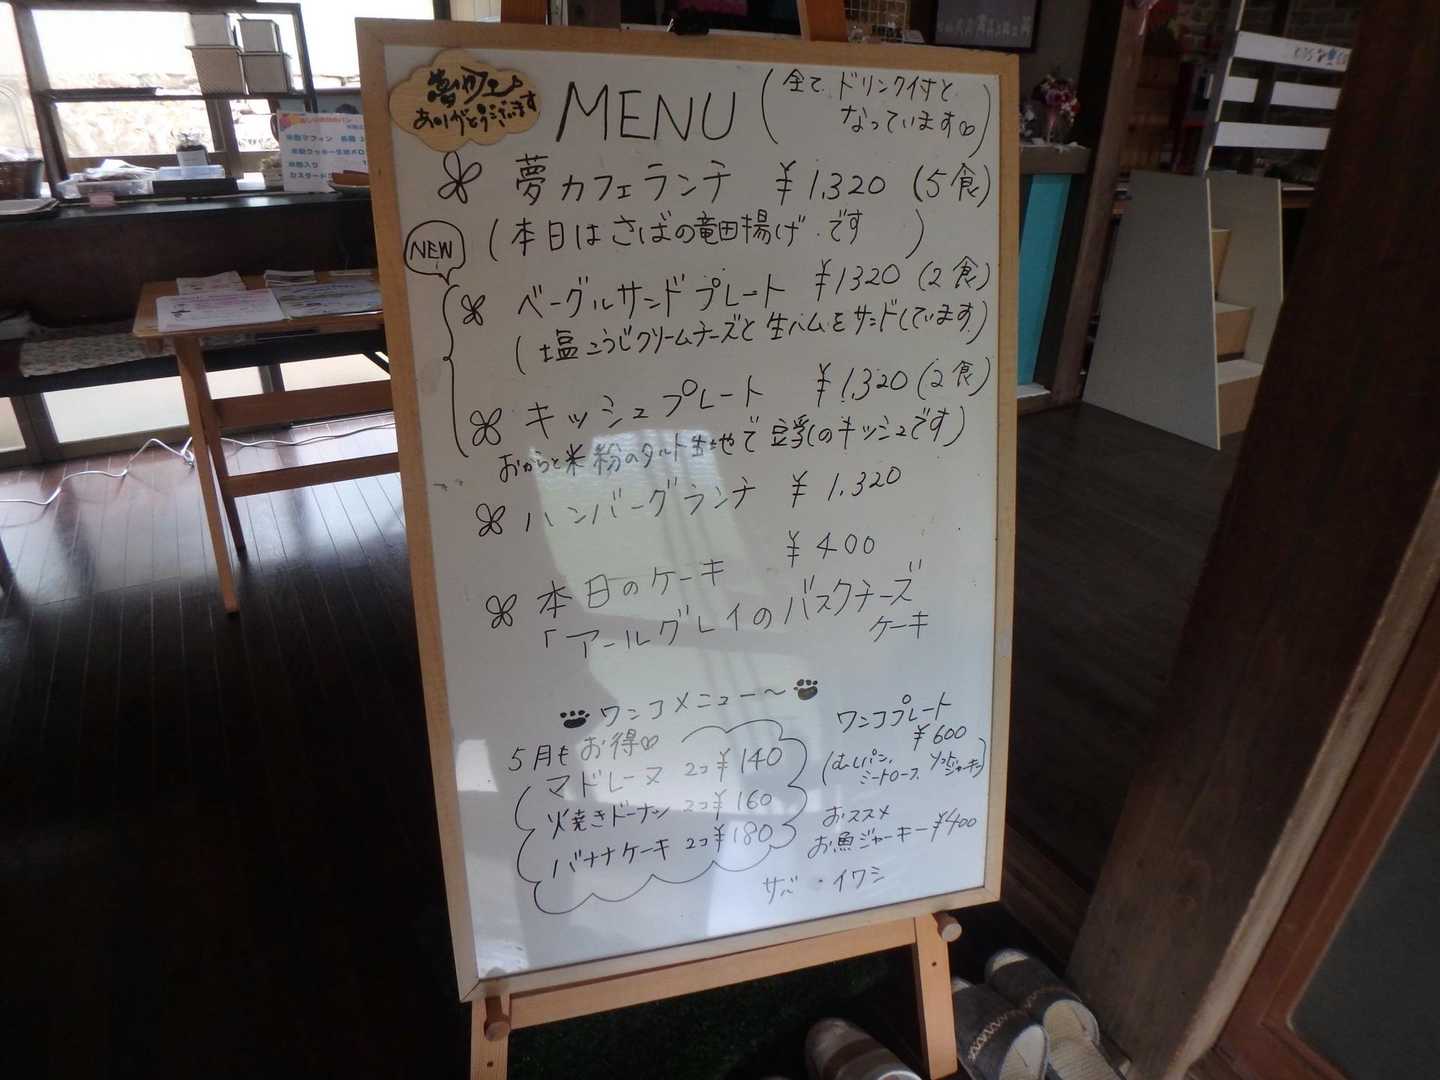 夢カフェ
ありがとうございます
MENU
(全て ドリンク付と
なっています♡)
夢カフェランチ ¥1,320 (5食)
(本日はさばの竜田揚げです)
NEW
ベーグルサンドプレート ¥1320 (2食)
(塩こうじクリームチーズと生ハムをサンドしています)
キッシュプレート ¥1,320 (2食)
おからと米粉のタルト生地で豆乳のキッシュです)
ハンバーグランチ ¥1,320
¥400
本日のケーキ
「アールグレイのバスクチーズ
ケーキ
ワンコメニュー〜
5月もお得♡
マドレーヌ 2コ¥140
焼きドーナツ 2コ¥160
バナナケーキ 2コ¥180
ワンコプレート
¥600
(むしパン、
ミートローフ、ソフトジャーキー)
おススメ
お魚ジャーキー¥400
サバ・イワシ